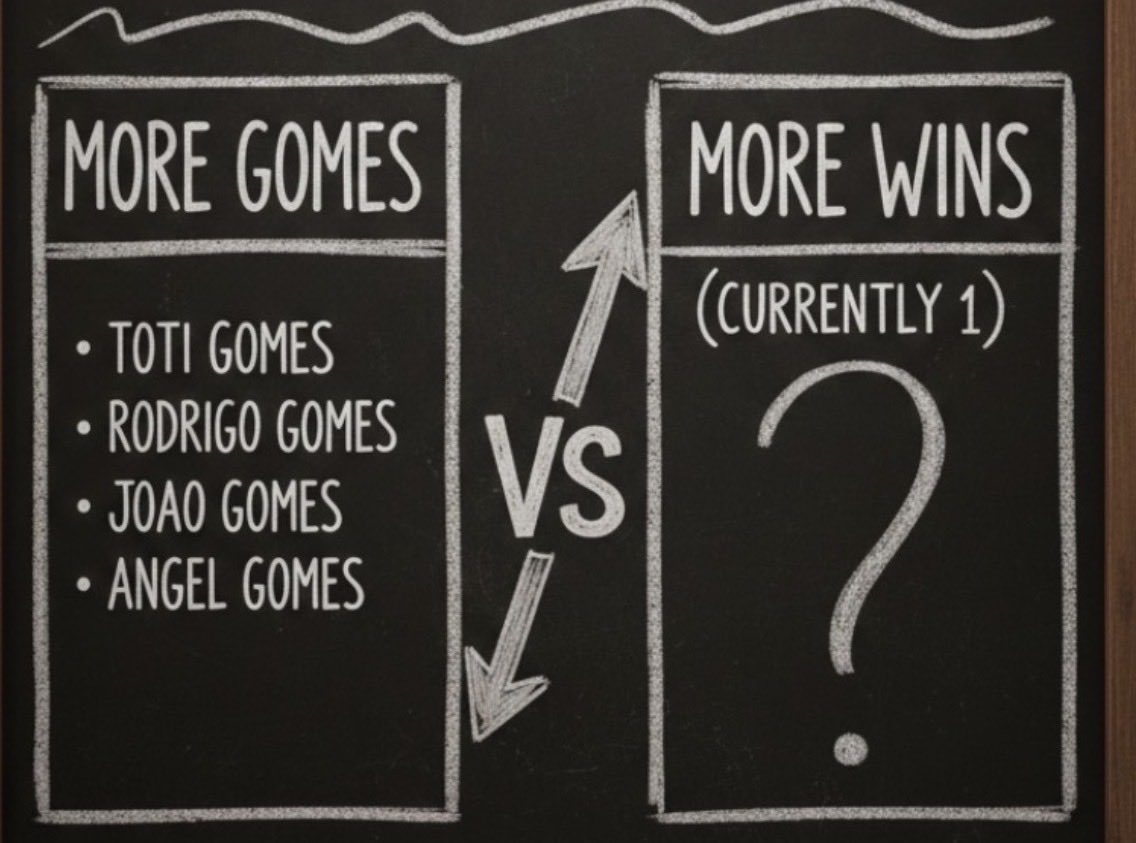 MORE GOMES
• TOTI GOMES
• RODRIGO GOMES
• JOAO GOMES
• ANGEL GOMES
VS
MORE WINS
(CURRENTLY 1)
?